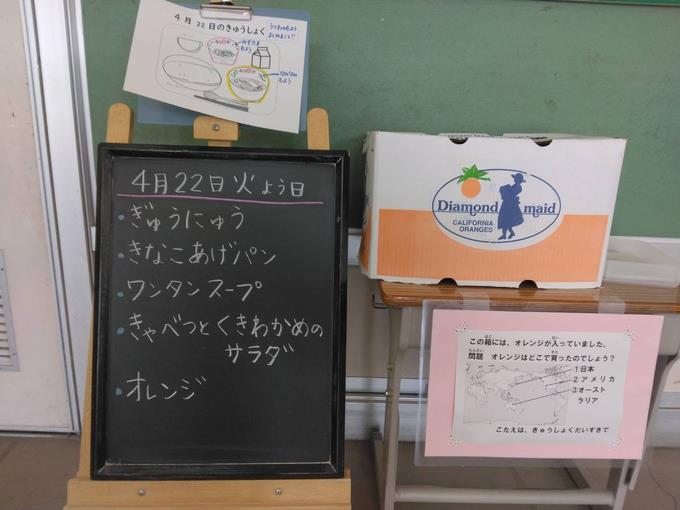 4月22日のきゅうしょく
4月22日火よう日
・ぎゅうにゅう
・きなこあげパン
・ワンタンスープ
・きゃべつとくきわかめの
サラダ
・オレンジ
Diamond maid
CALIFORNIA
ORANGES
この箱には、オレンジが入っていました。
問題 オレンジはどこで育ったのでしょう?
1日本
2アメリカ
3オースト
ラリア
こたえは、きゅうしょくだいすきで